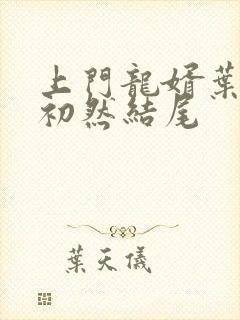 上門龍婿葉
初然結尾
葉天儀